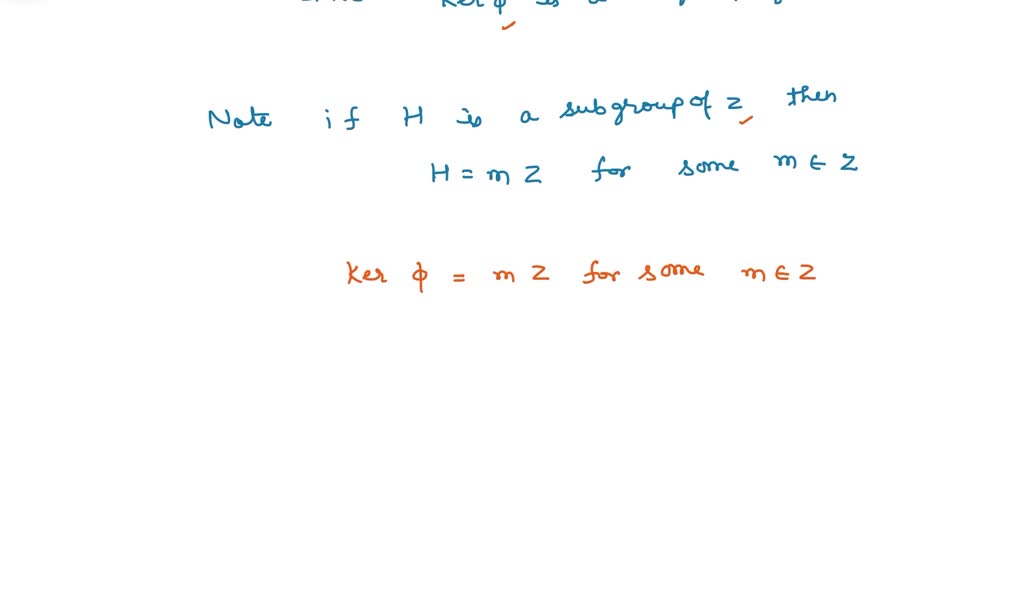 Ker φ is a
Note if H is a subgroup of Z then
H = m Z for some m ∈ Z
Ker φ = m Z for some m ∈ Z